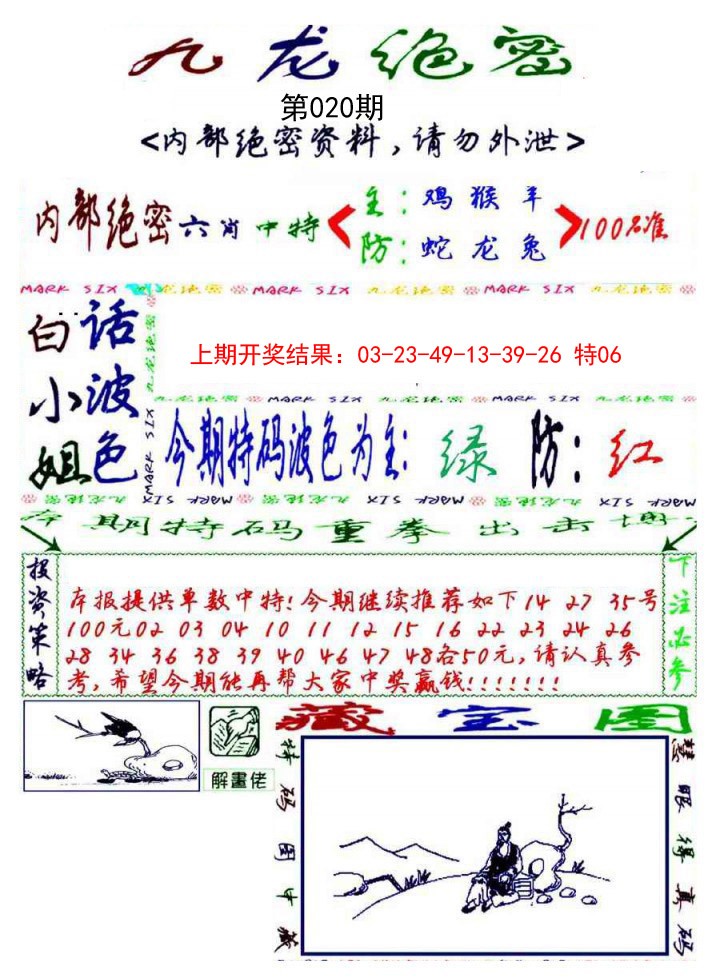 九龙绝密
第020期
<内部绝密资料,请勿外泄>
内部绝密六肖中特
主:鸡猴羊
防:蛇龙兔
100%准
MARK SIX 九龙绝密 MARK SIX 九龙绝密 MARK SIX 九龙绝密
白话
小波
姐色
九龙绝密
MARK SIX
上期开奖结果：03-23-49-13-39-26 特06
九龙绝密 MARK SIX 九龙绝密 MARK SIX 九龙绝密
今期特码波色为主:绿 防:红
MARK SIX 九龙绝密 MARK SIX 九龙绝密 MARK SIX 九龙绝密
本期特码重拳出击博
投资策略
本报提供单数中特!今期继续推荐如下14 27 35号
100元02 03 04 10 11 12 15 16 22 23 24 26
28 34 36 38 39 40 46 47 48各50元,请认真参
考,希望今期能再帮大家中奖赢钱!!!!!!!
下注必参
解畫佬
藏宝图
特码图中藏
慧眼得真码